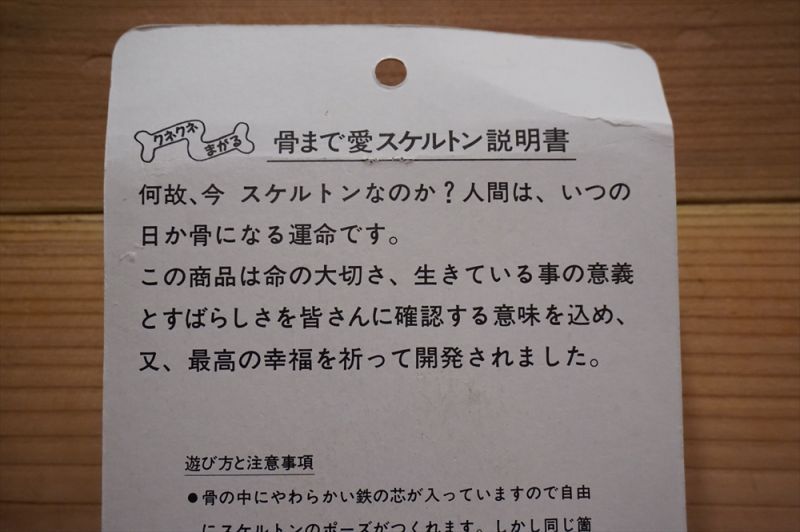 クネクネ
まがる
骨まで愛スケルトン説明書
何故、今 スケルトンなのか？人間は、いつの
日か骨になる運命です。
この商品は命の大切さ、生きている事の意義
とすばらしさを皆さんに確認する意味を込め、
又、最高の幸福を祈って開発されました。
遊び方と注意事項
●骨の中にやわらかい鉄の芯が入っていますので自由
にスケルトンのポーズがつくれます。しかし同じ箇